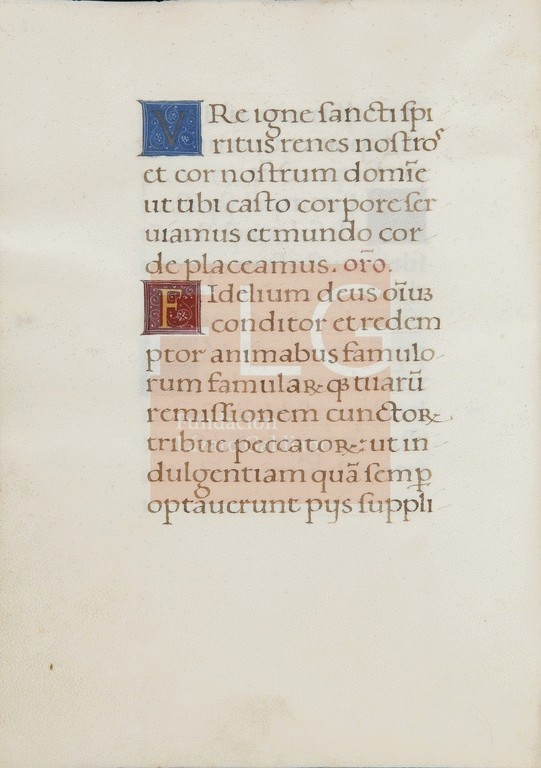 VRe igne sancti spi
ritus renes nostros
et cor nostrum domīe
ut tibi casto corpore ser
uiamus et mundo cor
de placeamus. orō.
FIdelium deus oīuꝫ
conditor et redem
ptor animabus famulo
rum famulaꝝ qꝫ tuarū
remissionem cunctoꝝ
tribue peccatoꝝ: ut in
dulgentiam quā semꝑ
optauerunt pijs suppli
FLG
Fundación